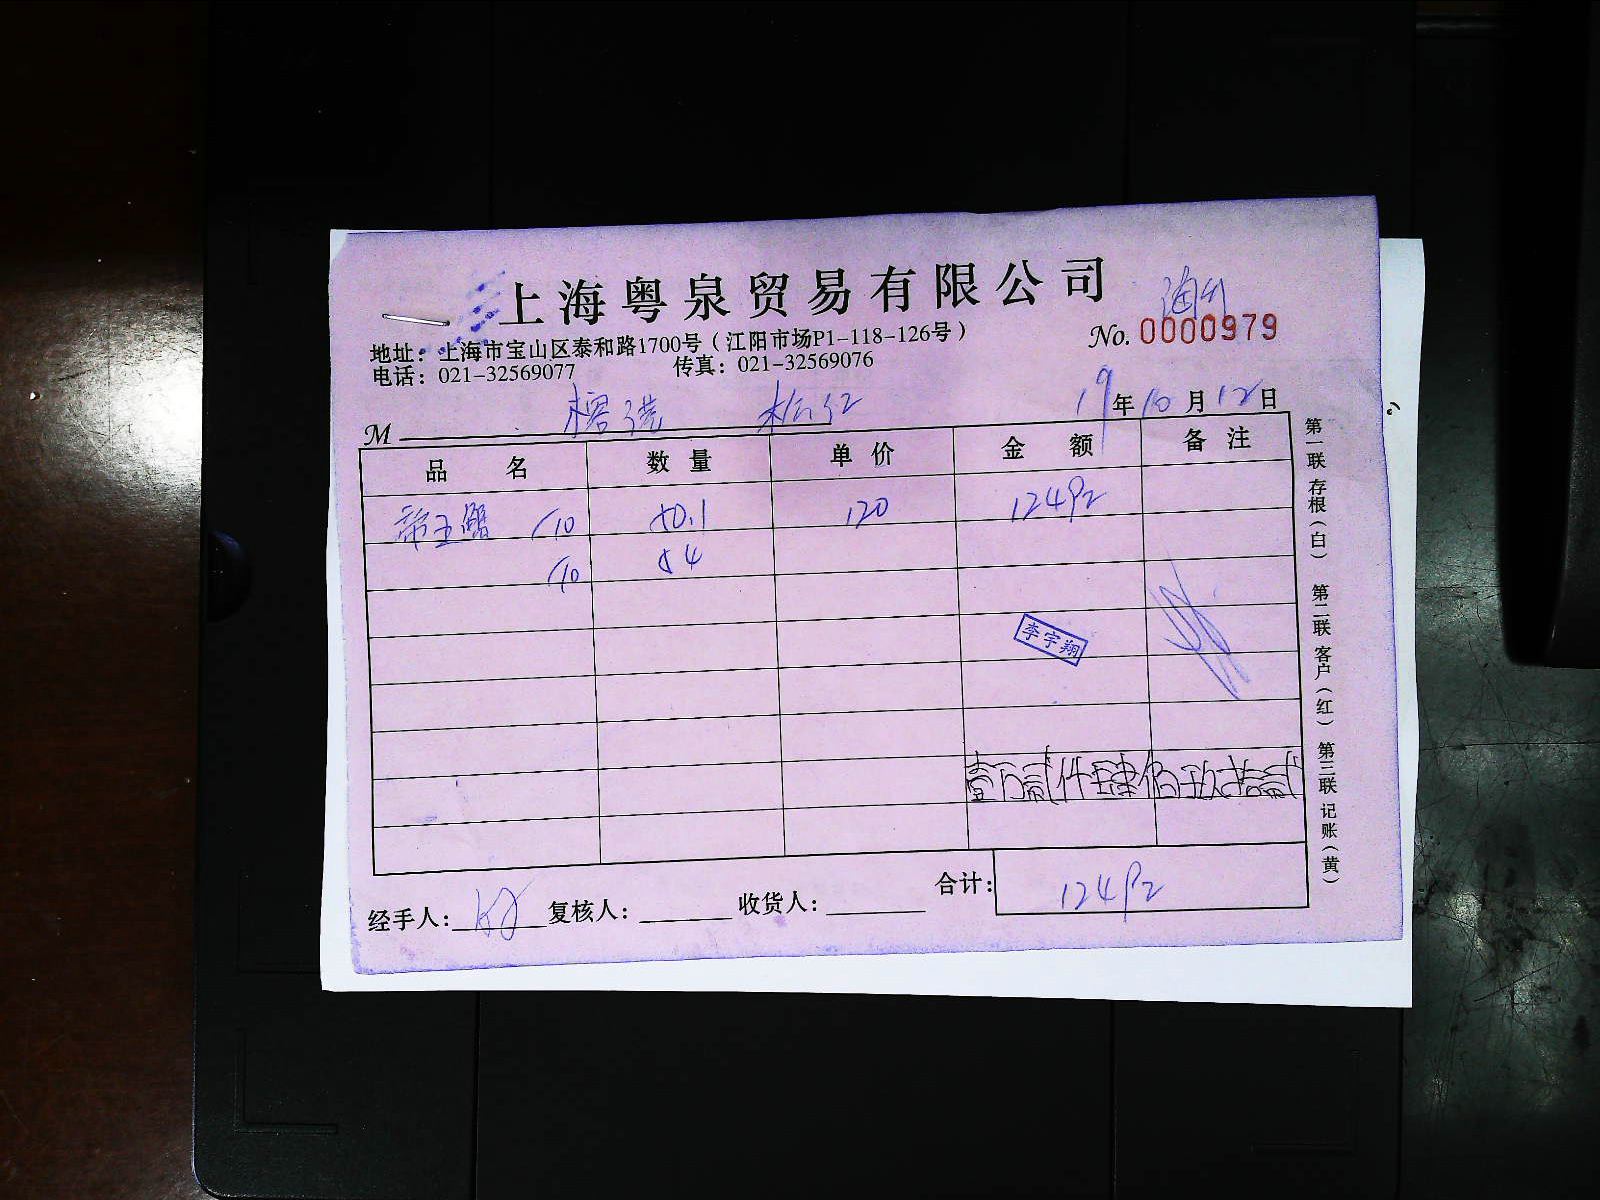 上海粤泉贸易有限公司
地址：上海市宝山区泰和路1700号（江阳市场P1-118-126号）
No. 0000979
电话：021-32569077 传真：021-32569076
19年10月12日
M
品名 数量 单价 金额 备注
帝王蟹 50.1 120 12492
54
李宇翔
壹万贰仟肆佰玖拾贰
合计： 12492
经手人： 复核人： 收货人：
第一联 存根（白） 第二联 客户（红） 第三联 记账（黄）